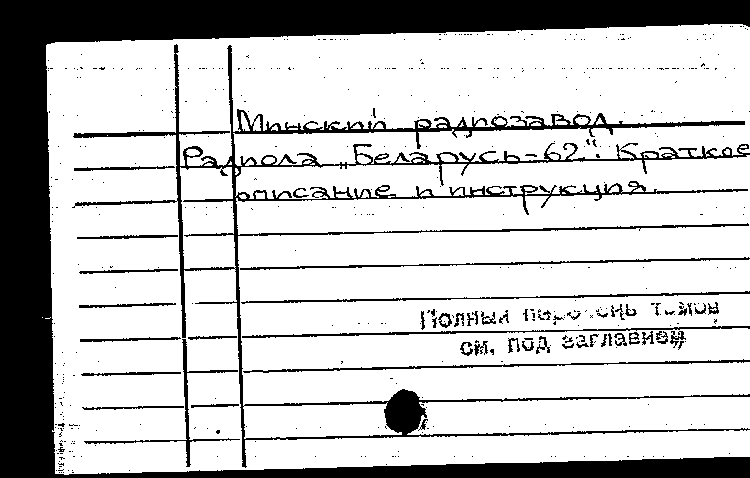 Минский радиозавод.
Радиола „Беларусь-62". Краткое
описание и инструкция.
Полный перечень томов
см. под заглавием